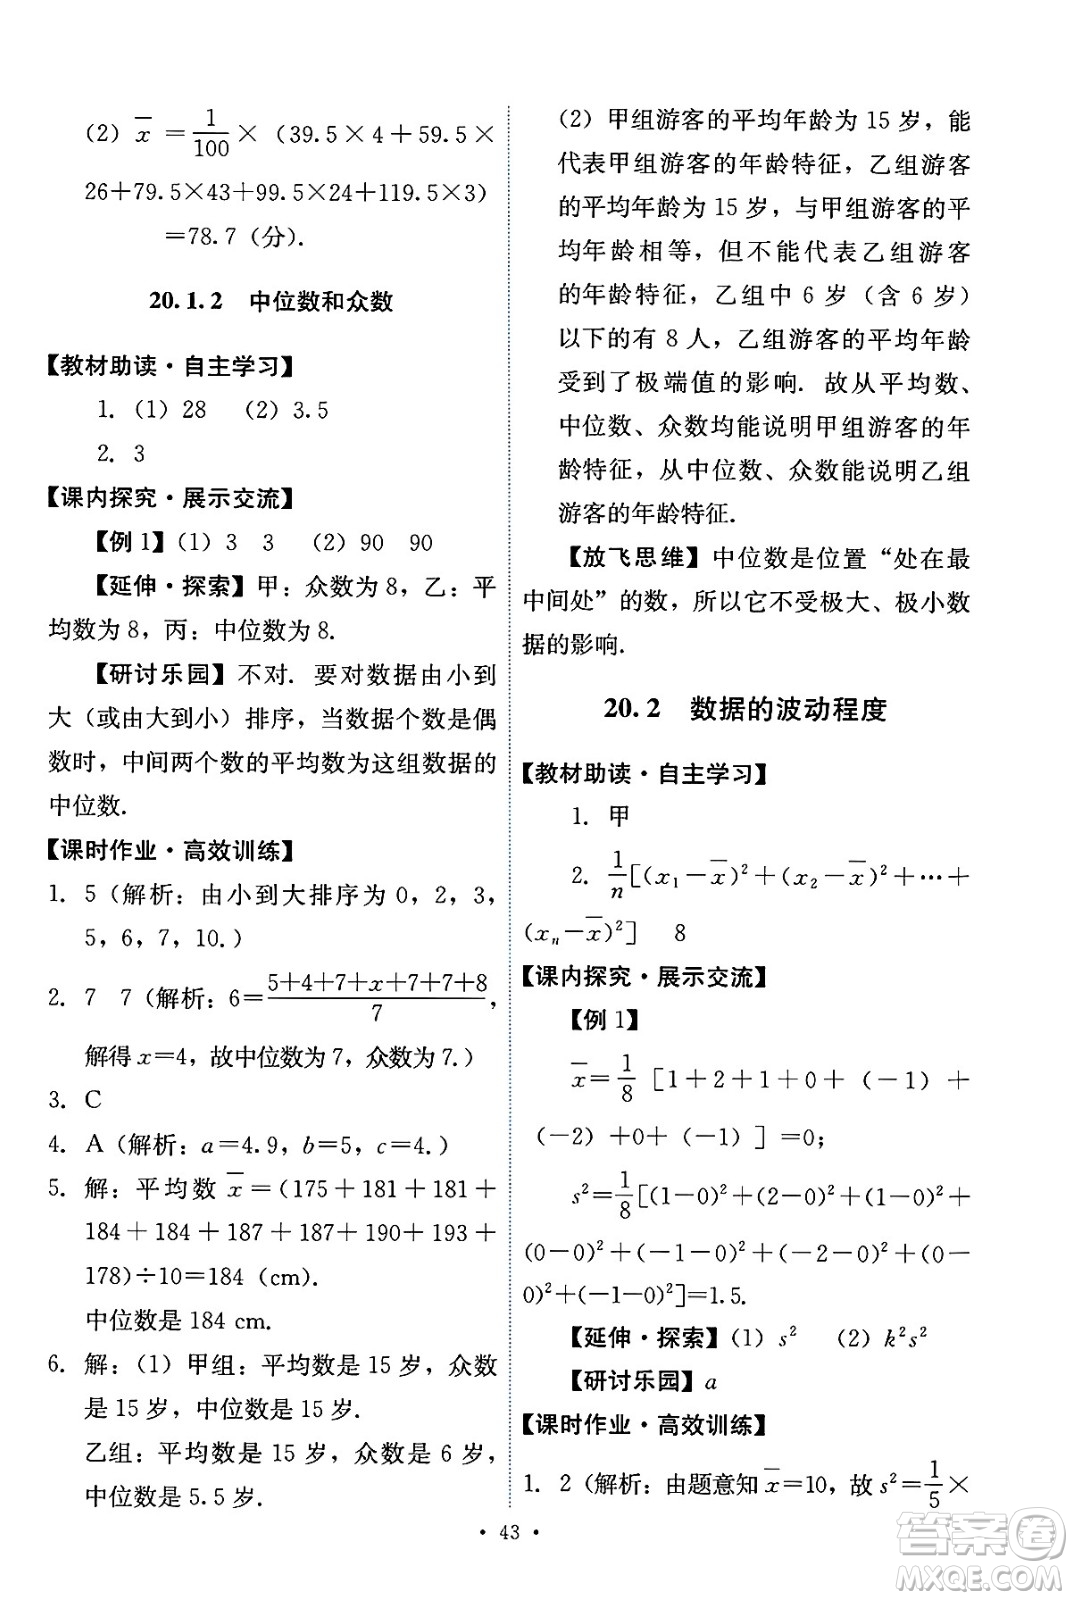 (2) x̄ = 1/100 × (39.5×4+59.5×
26+79.5×43+99.5×24+119.5×3)
=78.7(分).
20.1.2 中位数和众数
【教材助读·自主学习】
1. (1) 28 (2) 3.5
2. 3
【课内探究·展示交流】
【例1】(1) 3 3 (2) 90 90
【延伸·探索】甲：众数为8，乙：平
均数为8，丙：中位数为8.
【研讨乐园】不对. 要对数据由小到
大（或由大到小）排序，当数据个数是偶
数时，中间两个数的平均数为这组数据的
中位数.
【课时作业·高效训练】
1. 5（解析：由小到大排序为0，2，3，
5，6，7，10.）
2. 7 7（解析：6=(5+4+7+x+7+7+8)/7，
解得x=4，故中位数为7，众数为7.）
3. C
4. A（解析：a=4.9，b=5，c=4.）
5. 解：平均数 x̄ =(175+181+181+
184+184+187+187+190+193+
178)÷10=184 (cm).
中位数是184 cm.
6. 解：(1) 甲组：平均数是15岁，众数
是15岁，中位数是15岁.
乙组：平均数是15岁，众数是6岁，
中位数是5.5岁.
(2) 甲组游客的平均年龄为15岁，能
代表甲组游客的年龄特征，乙组游客
的平均年龄为15岁，与甲组游客的平
均年龄相等，但不能代表乙组游客
的年龄特征，乙组中6岁（含6岁）
以下的有8人，乙组游客的平均年龄
受到了极端值的影响. 故从平均数、
中位数、众数均能说明甲组游客的年
龄特征，从中位数、众数能说明乙组
游客的年龄特征.
【放飞思维】中位数是位置“处在最
中间处”的数，所以它不受极大、极小数
据的影响.
20.2 数据的波动程度
【教材助读·自主学习】
1. 甲
2. 1/n[(x₁−x̄)²+(x₂−x̄)²+…+
(xₙ−x̄)²] 8
【课内探究·展示交流】
【例1】
x̄=1/8 [1+2+1+0+(−1)+
(−2)+0+(−1)]=0;
s²=1/8[(1−0)²+(2−0)²+(1−0)²+
(0−0)²+(−1−0)²+(−2−0)²+(0−
0)²+(−1−0)²]=1.5.
【延伸·探索】(1) s² (2) k²s²
【研讨乐园】a
【课时作业·高效训练】
1. 2（解析：由题意知x̄=10，故s²=1/5×
· 43 ·
答案圈
MXQE.COM